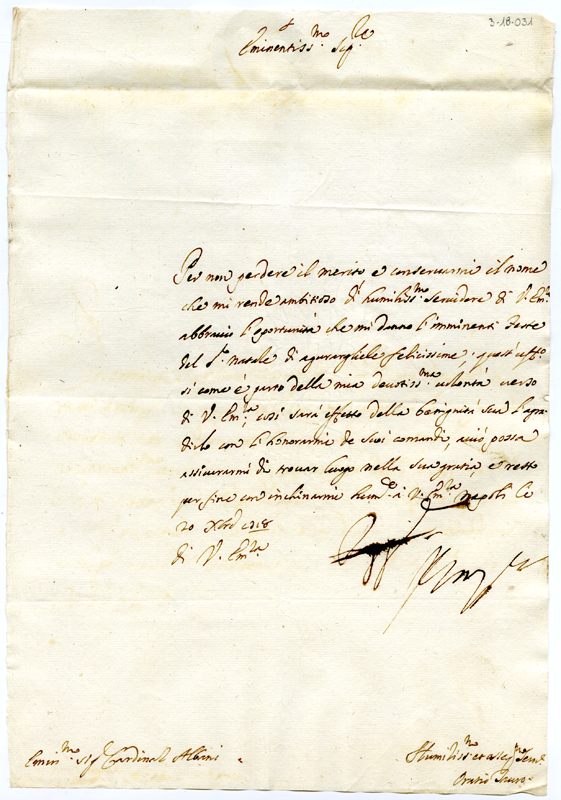 3-18-031
Eminentiss.mo Sig.re
Per non perdere il merito e conservarmi il nome
che mi rende ambitioso di humiliss.mo servidore di V. Em.a
abbraccio l'oportunità che mi danno l'imminenti feste
del S.to natale di agurargliele felicissime; quest'
si come è parto della mia devotiss.ma volontà verso
di V. Em.za, così sarà effetto della benignità sua l'agra-
dirlo con l'honorarmi de suoi comandi, acciò possa
assicurarmi di trovar luogo nella sua gratia, e resto
per fine con inchinarmi hum.te a V. Em.za Napoli li
20 Xbre 1718
di V. Em.za
Emin.mo Sig.r Cardinal Albani
Humiliss.mo et Serv.
Oratio